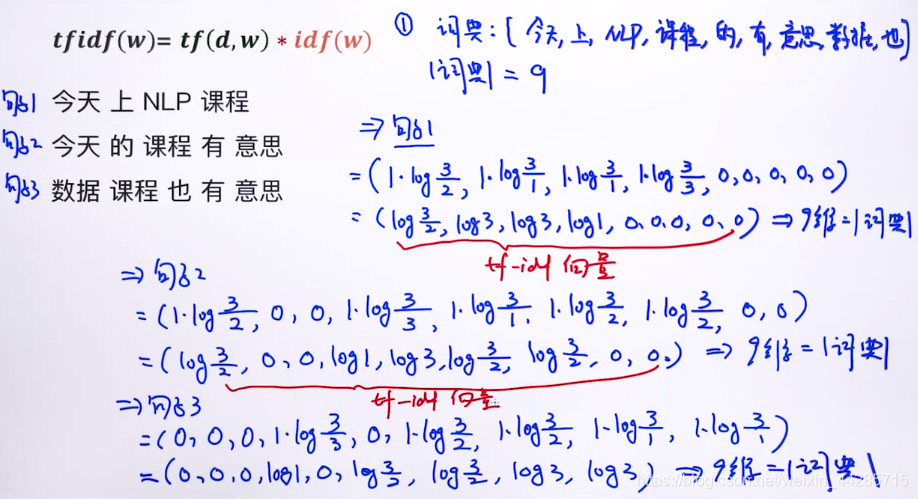 tfidf(w)= tf(d,w) * idf(w)
① 词典: [今天, 上, NLP, 课程, 的, 有, 意思, 数据, 也]
|词典| = 9
句子1 今天 上 NLP 课程
句子2 今天 的 课程 有 意思
句子3 数据 课程 也 有 意思
⇒ 句子1
= (1·log 3/2, 1·log 3/1, 1·log 3/1, 1·log 3/3, 0, 0, 0, 0, 0)
= (log 3/2, log3, log3, log1, 0, 0, 0, 0, 0) ⇒ 9维=|词典|
tf-idf 向量
⇒ 句子2
= (1·log 3/2, 0, 0, 1·log 3/3, 1·log 3/1, 1·log 3/2, 1·log 3/2, 0, 0)
= (log 3/2, 0, 0, log1, log3, log 3/2, log 3/2, 0, 0) ⇒ 9维=|词典|
tf-idf 向量
⇒ 句子3
= (0, 0, 0, 1·log 3/3, 0, 1·log 3/2, 1·log 3/2, 1·log 3/1, 1·log 3/1)
= (0, 0, 0, log1, 0, log 3/2, log 3/2, log3, log3) ⇒ 9维=|词典|
https://blog.csdn.net/weixin_44285715